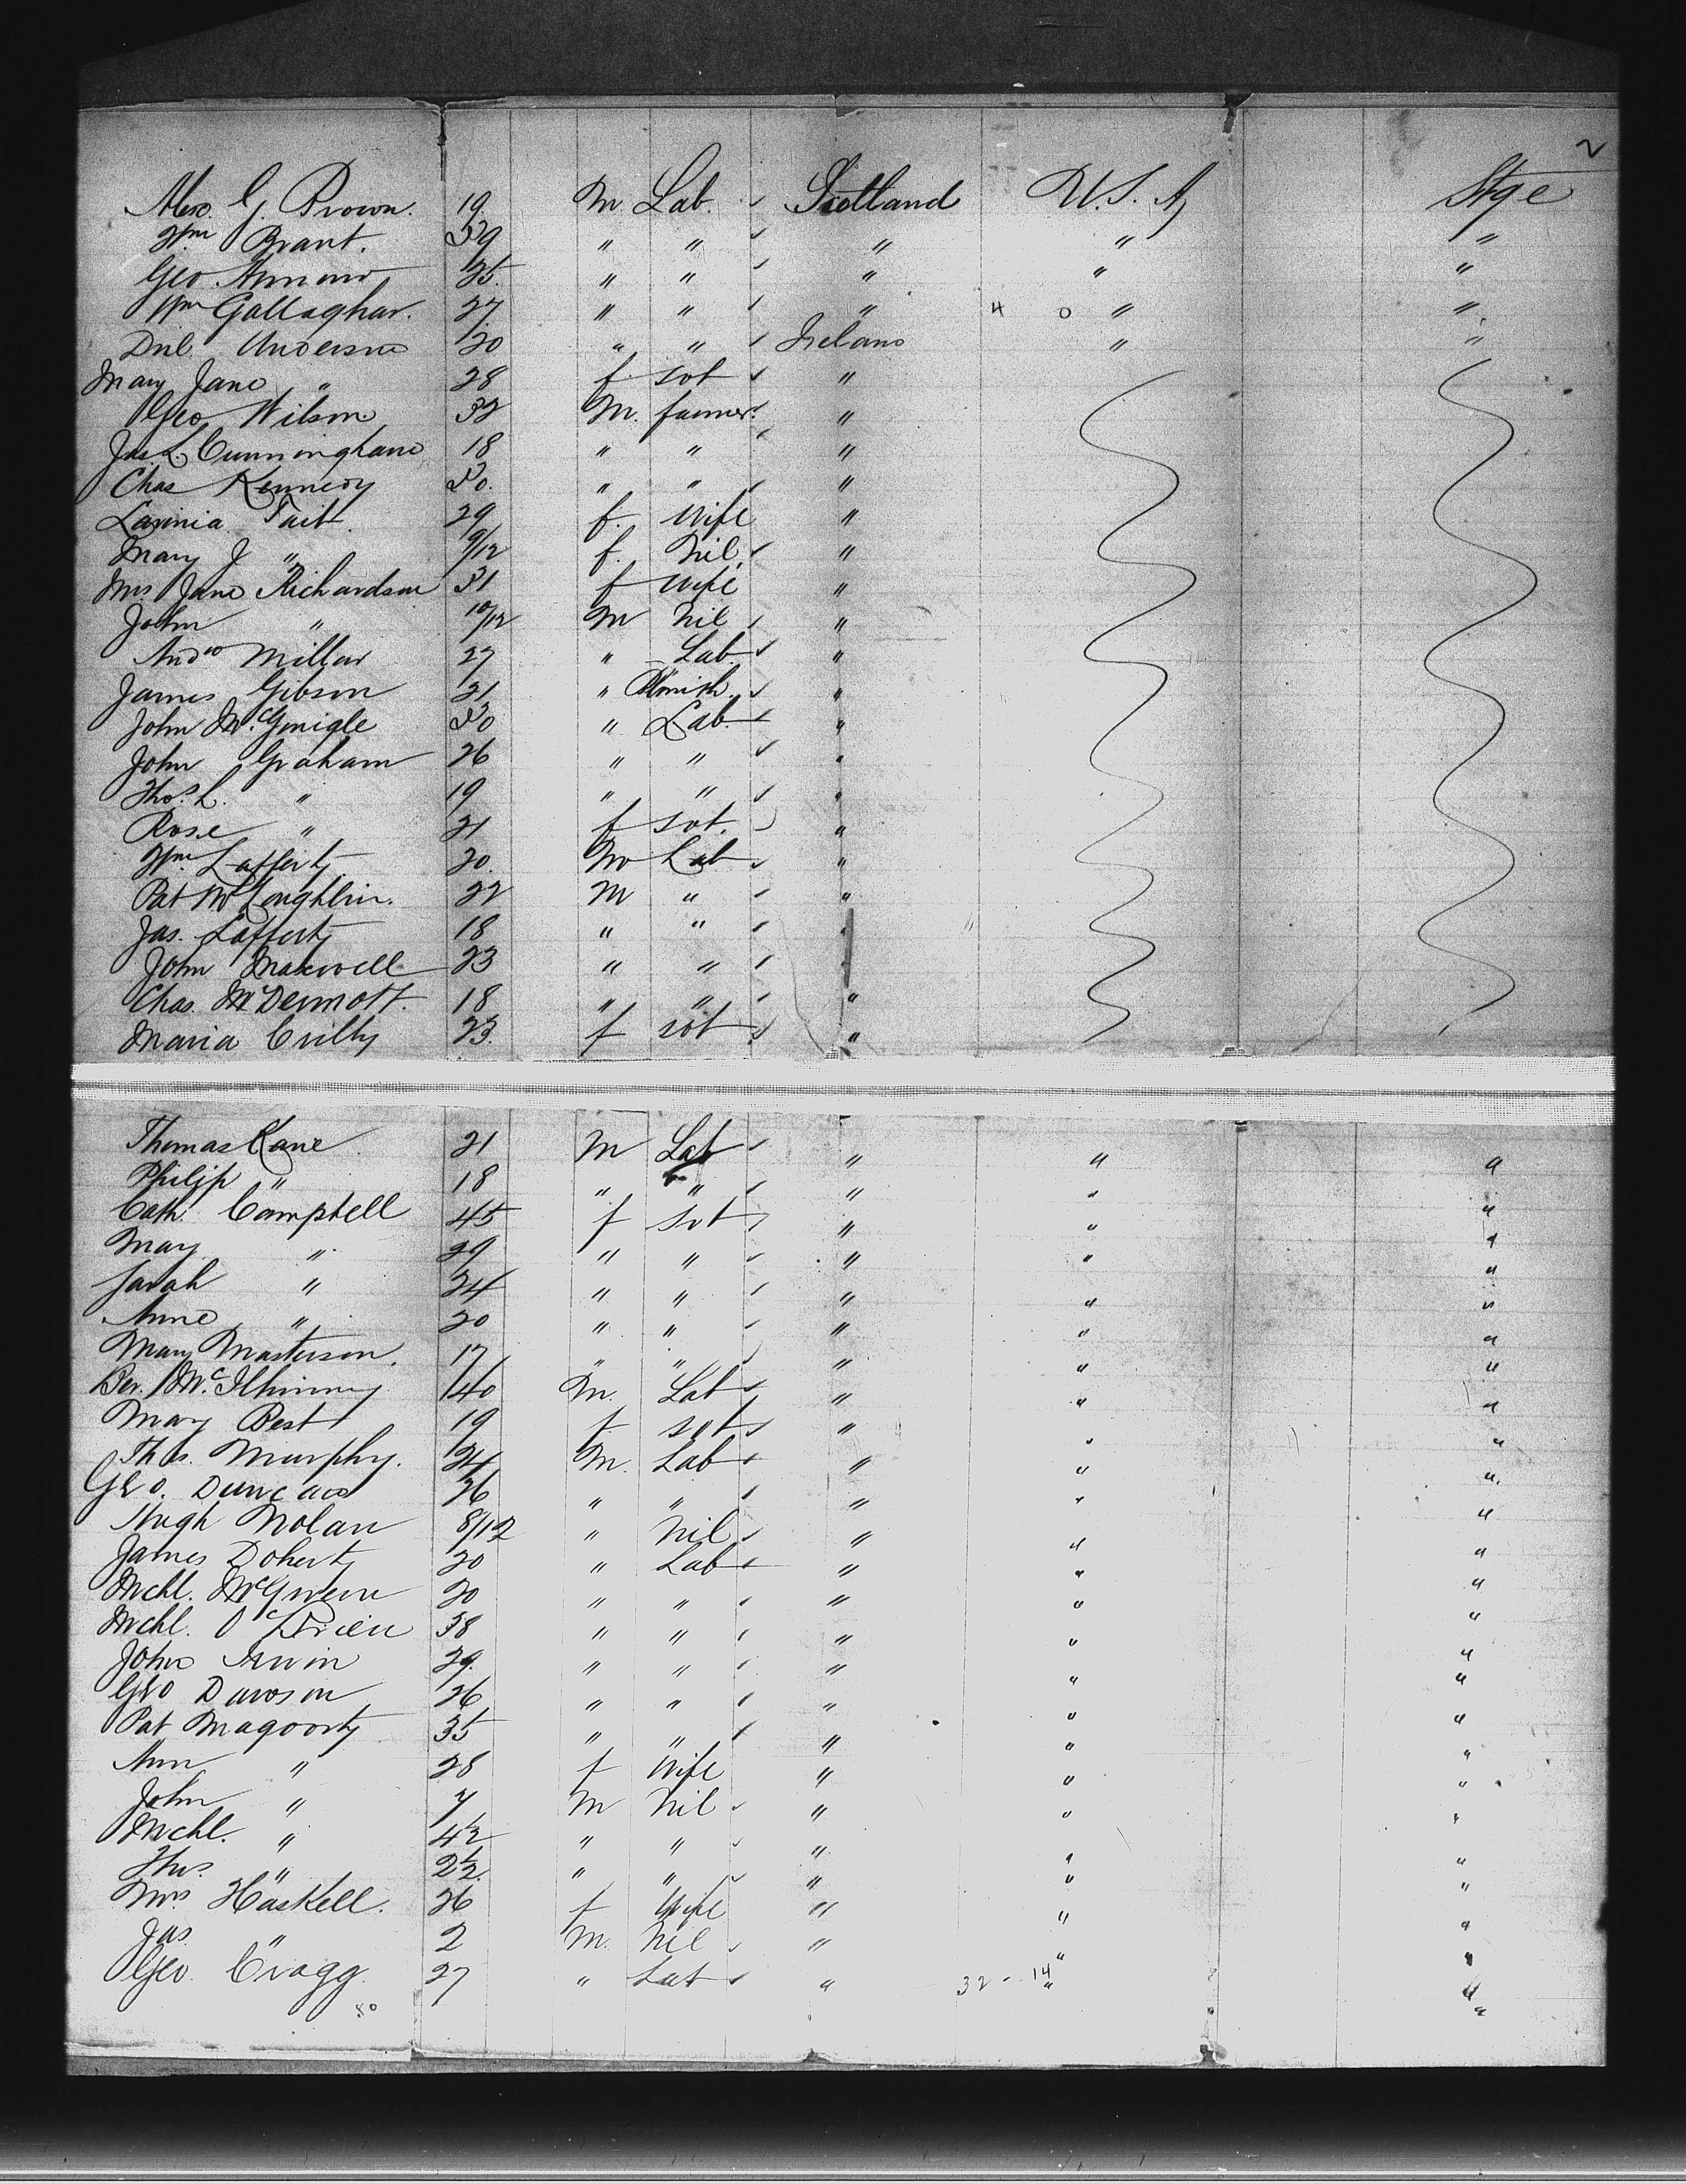 2
Alex. G. Brown. 19. M. Lab. Scotland U.S.A Stge
Wm Brant. 39 " " " " "
Geo 25. " " " " "
Wm Gallaghar. 27 " " " 4 0 " "
Dnl. Anderson 20 " " Ireland " "
Mary Jane " 28 f sot "
Geo Wilson. 32 M. farmer. "
Jas. L. Cunningham 18 " " "
Chas Kennedy 30. " " "
Lavinia Tait. 29 f. Wife "
Mary J " 9/12 f. Nil. "
Mrs Jane Richardson 31 f wife "
John " 10/12 M Nil "
Andw Millar 27 " Lab. "
James Gibson 21 " "
John McGonigle 30 " Lab "
John Graham 26 " " "
Thos. L. " 19 " " "
Rose " 21 f sot. "
Wm. Lafferty 20. M Lab "
Pat McLoughlin. 22 M " "
Jas. Lafferty 18 " " "
John Maxwell 23 " " "
Chas. McDermott. 18 " " "
Maria Crilly 23. f sot "
Thomas Kane 21 M Lab " " "
Philip " 18 " " " " "
Cath. Campbell 45 f sot " " "
Mary " 29 " " " " "
Sarah " 24 " " " " "
Anne " 20 " " " " "
Mary Masterson. 17 " " " " "
Ber. McIlhinney 40 M. Lab " " "
Mary Best 19 f sot " " "
Thos. Murphy. 24 M. Lab " " "
Geo. Duncan 26 " " " " "
Hugh Nolan 8/12 " Nil " " "
James Doherty 20 " Lab " " "
Mchl. 20 " " " " "
Mchl. O'Brien 38 " " " " "
John Irwin 29. " " " " "
Geo Dawson 26 " " " " "
Pat Magoorty 35 " " " " "
Ann " 28 f Wife " " "
John " 7 M Nil " " "
Mchl. " 4½ " " " " "
Thos. " 2½ " " " " "
Mrs Haskell. 26 f Wife " " "
Jas " 2 M. Nil " " "
Geo. Cragg. 27 " Lab " 32 - 14 " "
80